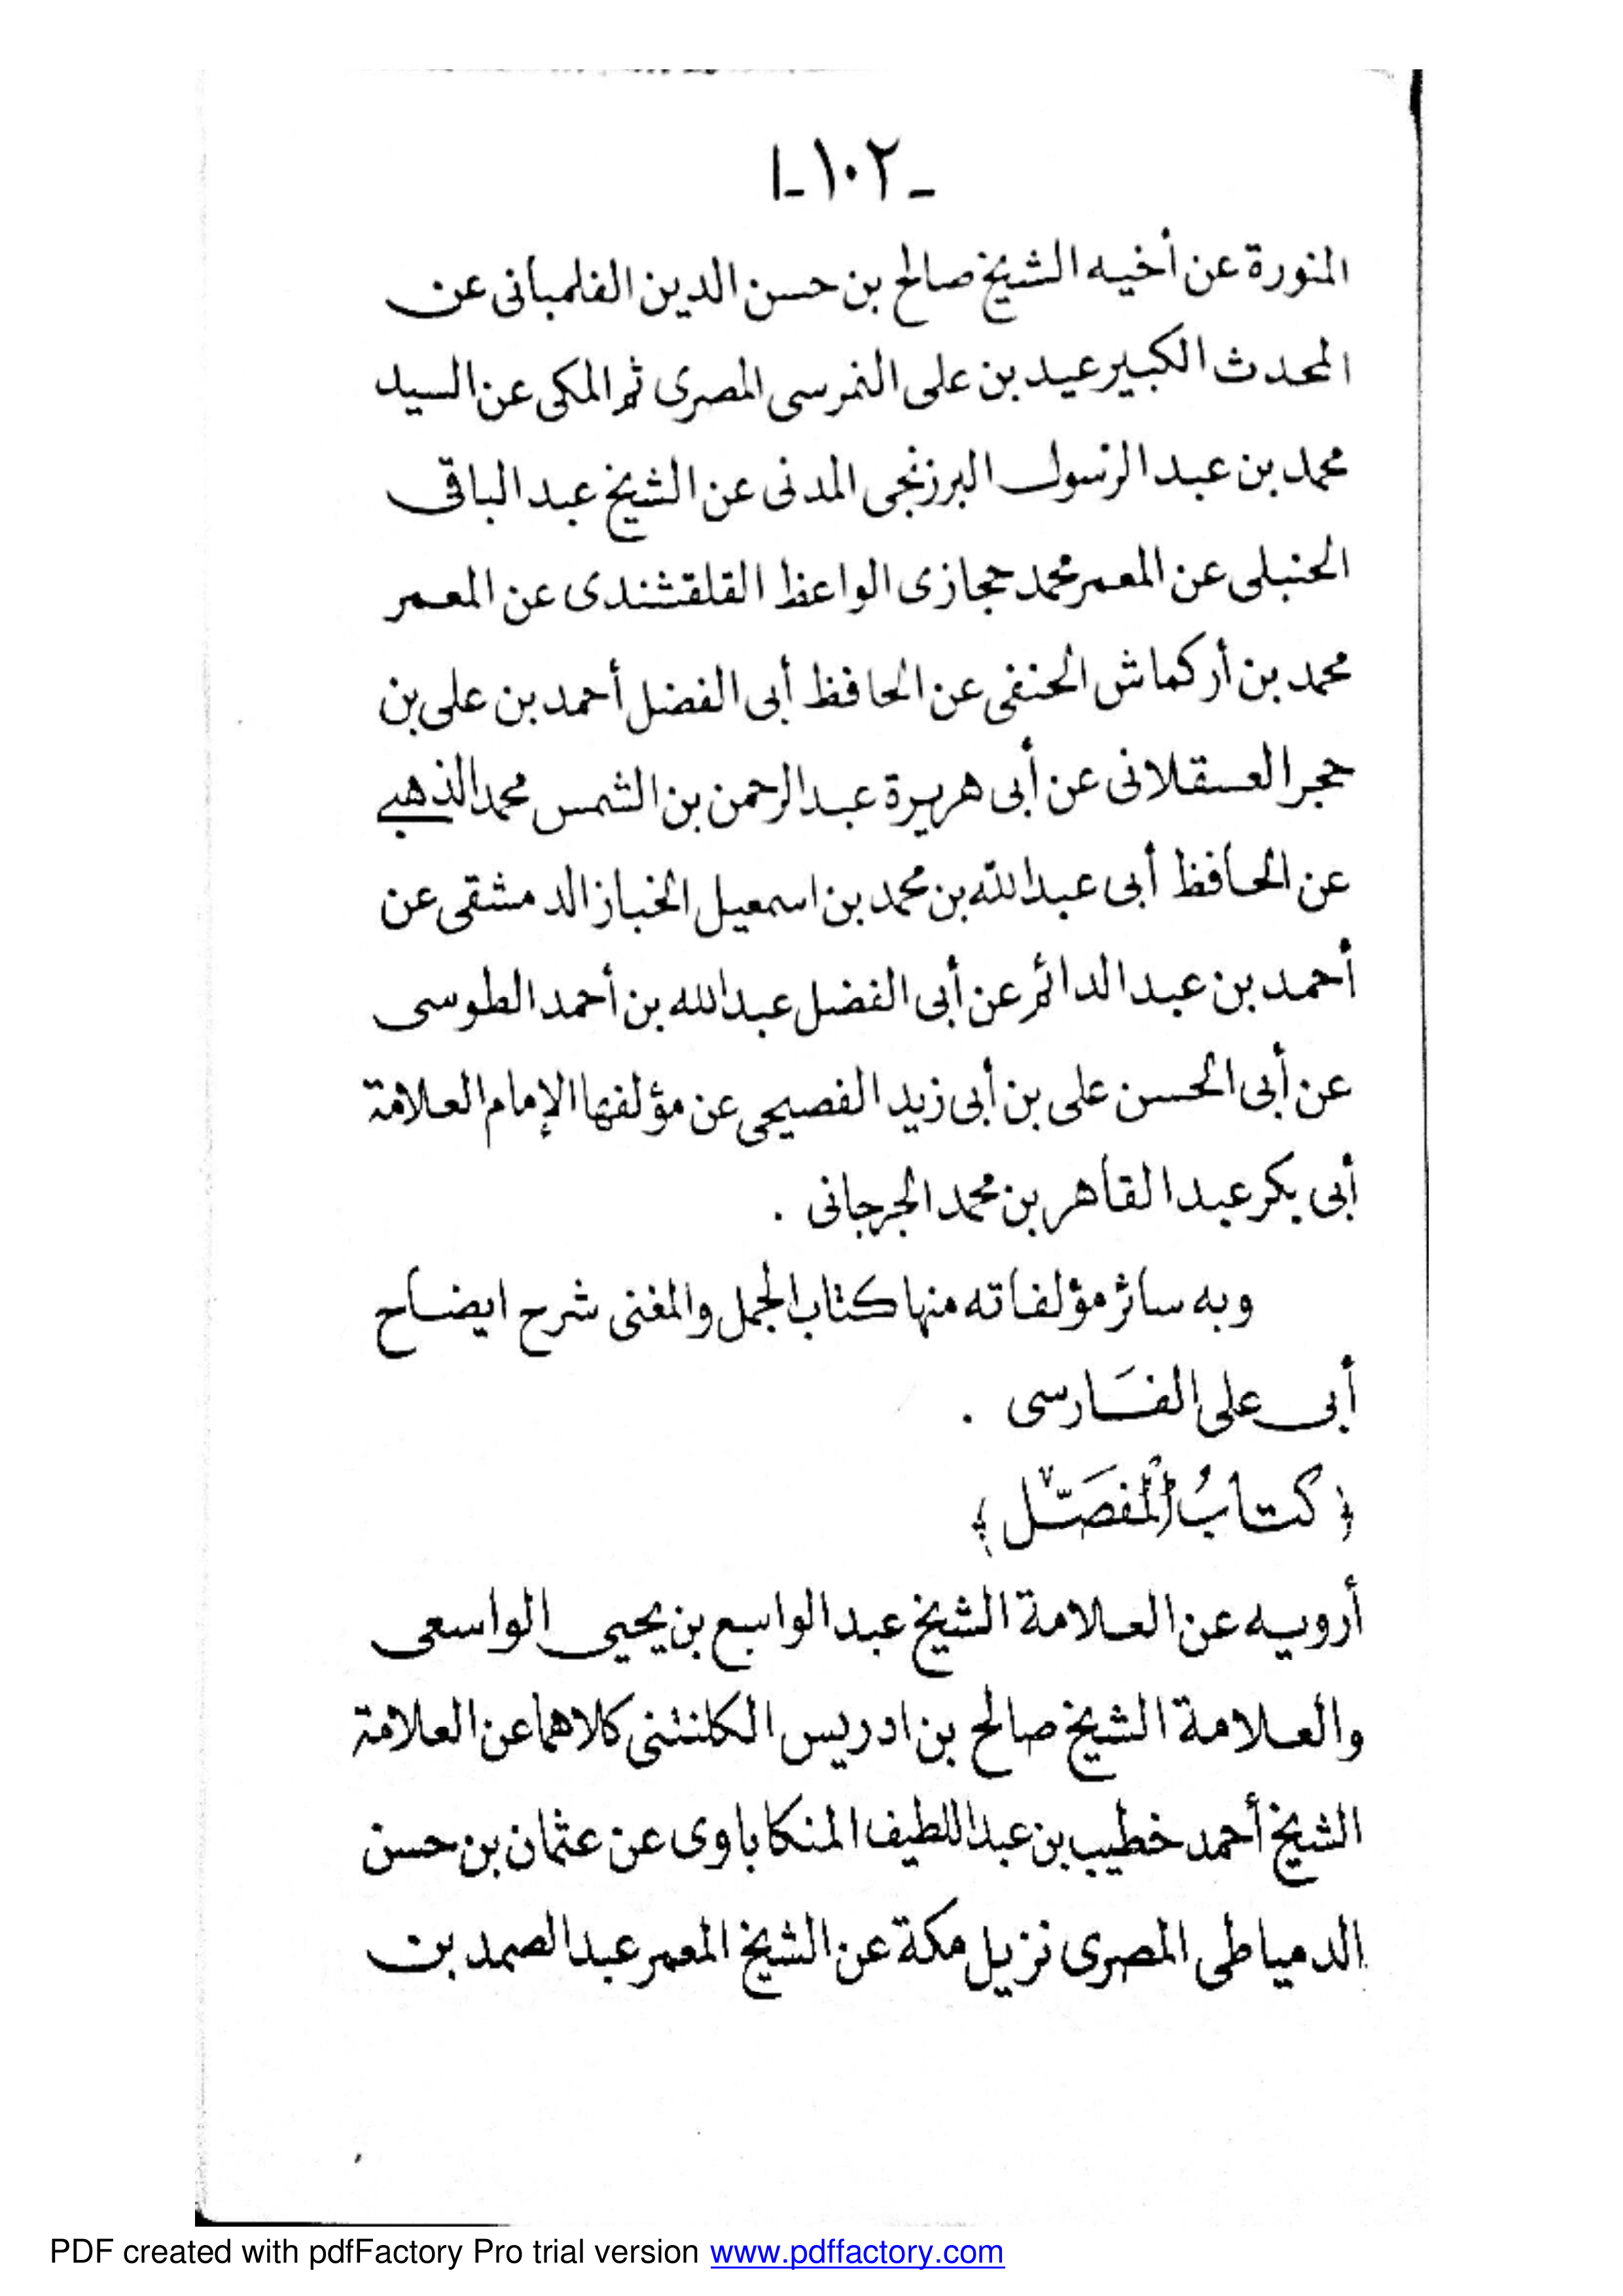 - ١٠٢ -ا
المنورة عن أخيه الشيخ صالح بن حسن الدين الفلمبانى عن
المحدث الكبير عيد بن على النمرسى المصرى ثم المكى عن السيد
محمد بن عبد الرسول البرزنجى المدنى عن الشيخ عبد الباقى
الحنبلى عن المعمر محمد حجازى الواعظ القلقشندى عن المعمر
محمد بن أركماش الحنفى عن الحافظ أبى الفضل أحمد بن على بن
حجر العسقلانى عن أبى هريرة عبد الرحمن بن الشمس محمد الذهبي
عن الحافظ أبى عبد الله بن محمد بن اسمعيل الخباز الدمشقى عن
أحمد بن عبد الدائم عن أبى الفضل عبد الله بن أحمد الطوسى
عن أبى الحسن على بن أبى زيد الفصيحى عن مؤلفها الإمام العلامة
أبى بكر عبد القاهر بن محمد الجرجانى .
وبه سائر مؤلفاته منها كتاب الجمل والمغنى شرح ايضاح
أبى على الفَارسى .
﴿ كتابُ المُفصَّل ﴾
أرويه عن العلامة الشيخ عبد الواسع بن يحيى الواسعى
والعلامة الشيخ صالح بن ادريس الكلنتنى كلاهما عن العلامة
الشيخ أحمد خطيب بن عبد اللطيف المنكاباوى عن عثمان بن حسن
الدمياطى المصرى نزيل مكة عن الشيخ المعمر عبد الصمد بن
PDF created with pdfFactory Pro trial version www.pdffactory.com